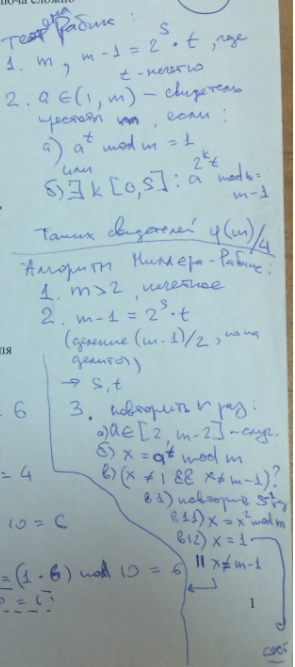 ключа сложно
тест Рабина:
1. m, m-1 = 2^s · t, где
t - нечетно
2. a ∈ (1, m) - свидетель
простоты m, если:
а) a^t mod m = 1
или
б) ∃ k [0, S]: a^{2^k t} mod m =
m-1
Таких свидетелей φ(m)/4
Алгоритм Миллера-Рабина:
1. m > 2, нечетное
2. m-1 = 2^s · t
(деление (m-1)/2, пока
делится)
→ s, t
3. повторить r раз:
а) a ∈ [2, m-2] - случ.
б) x = a^t mod m
в) (x ≠ 1 && x ≠ m-1)?
в1) повторить s-1 раз
в11) x = x² mod m
в12) x = 1
|| x ≠ m-1
сост
6
= 4
10 = 6
= (1 · 6) mod 10 = 6
= 6
1